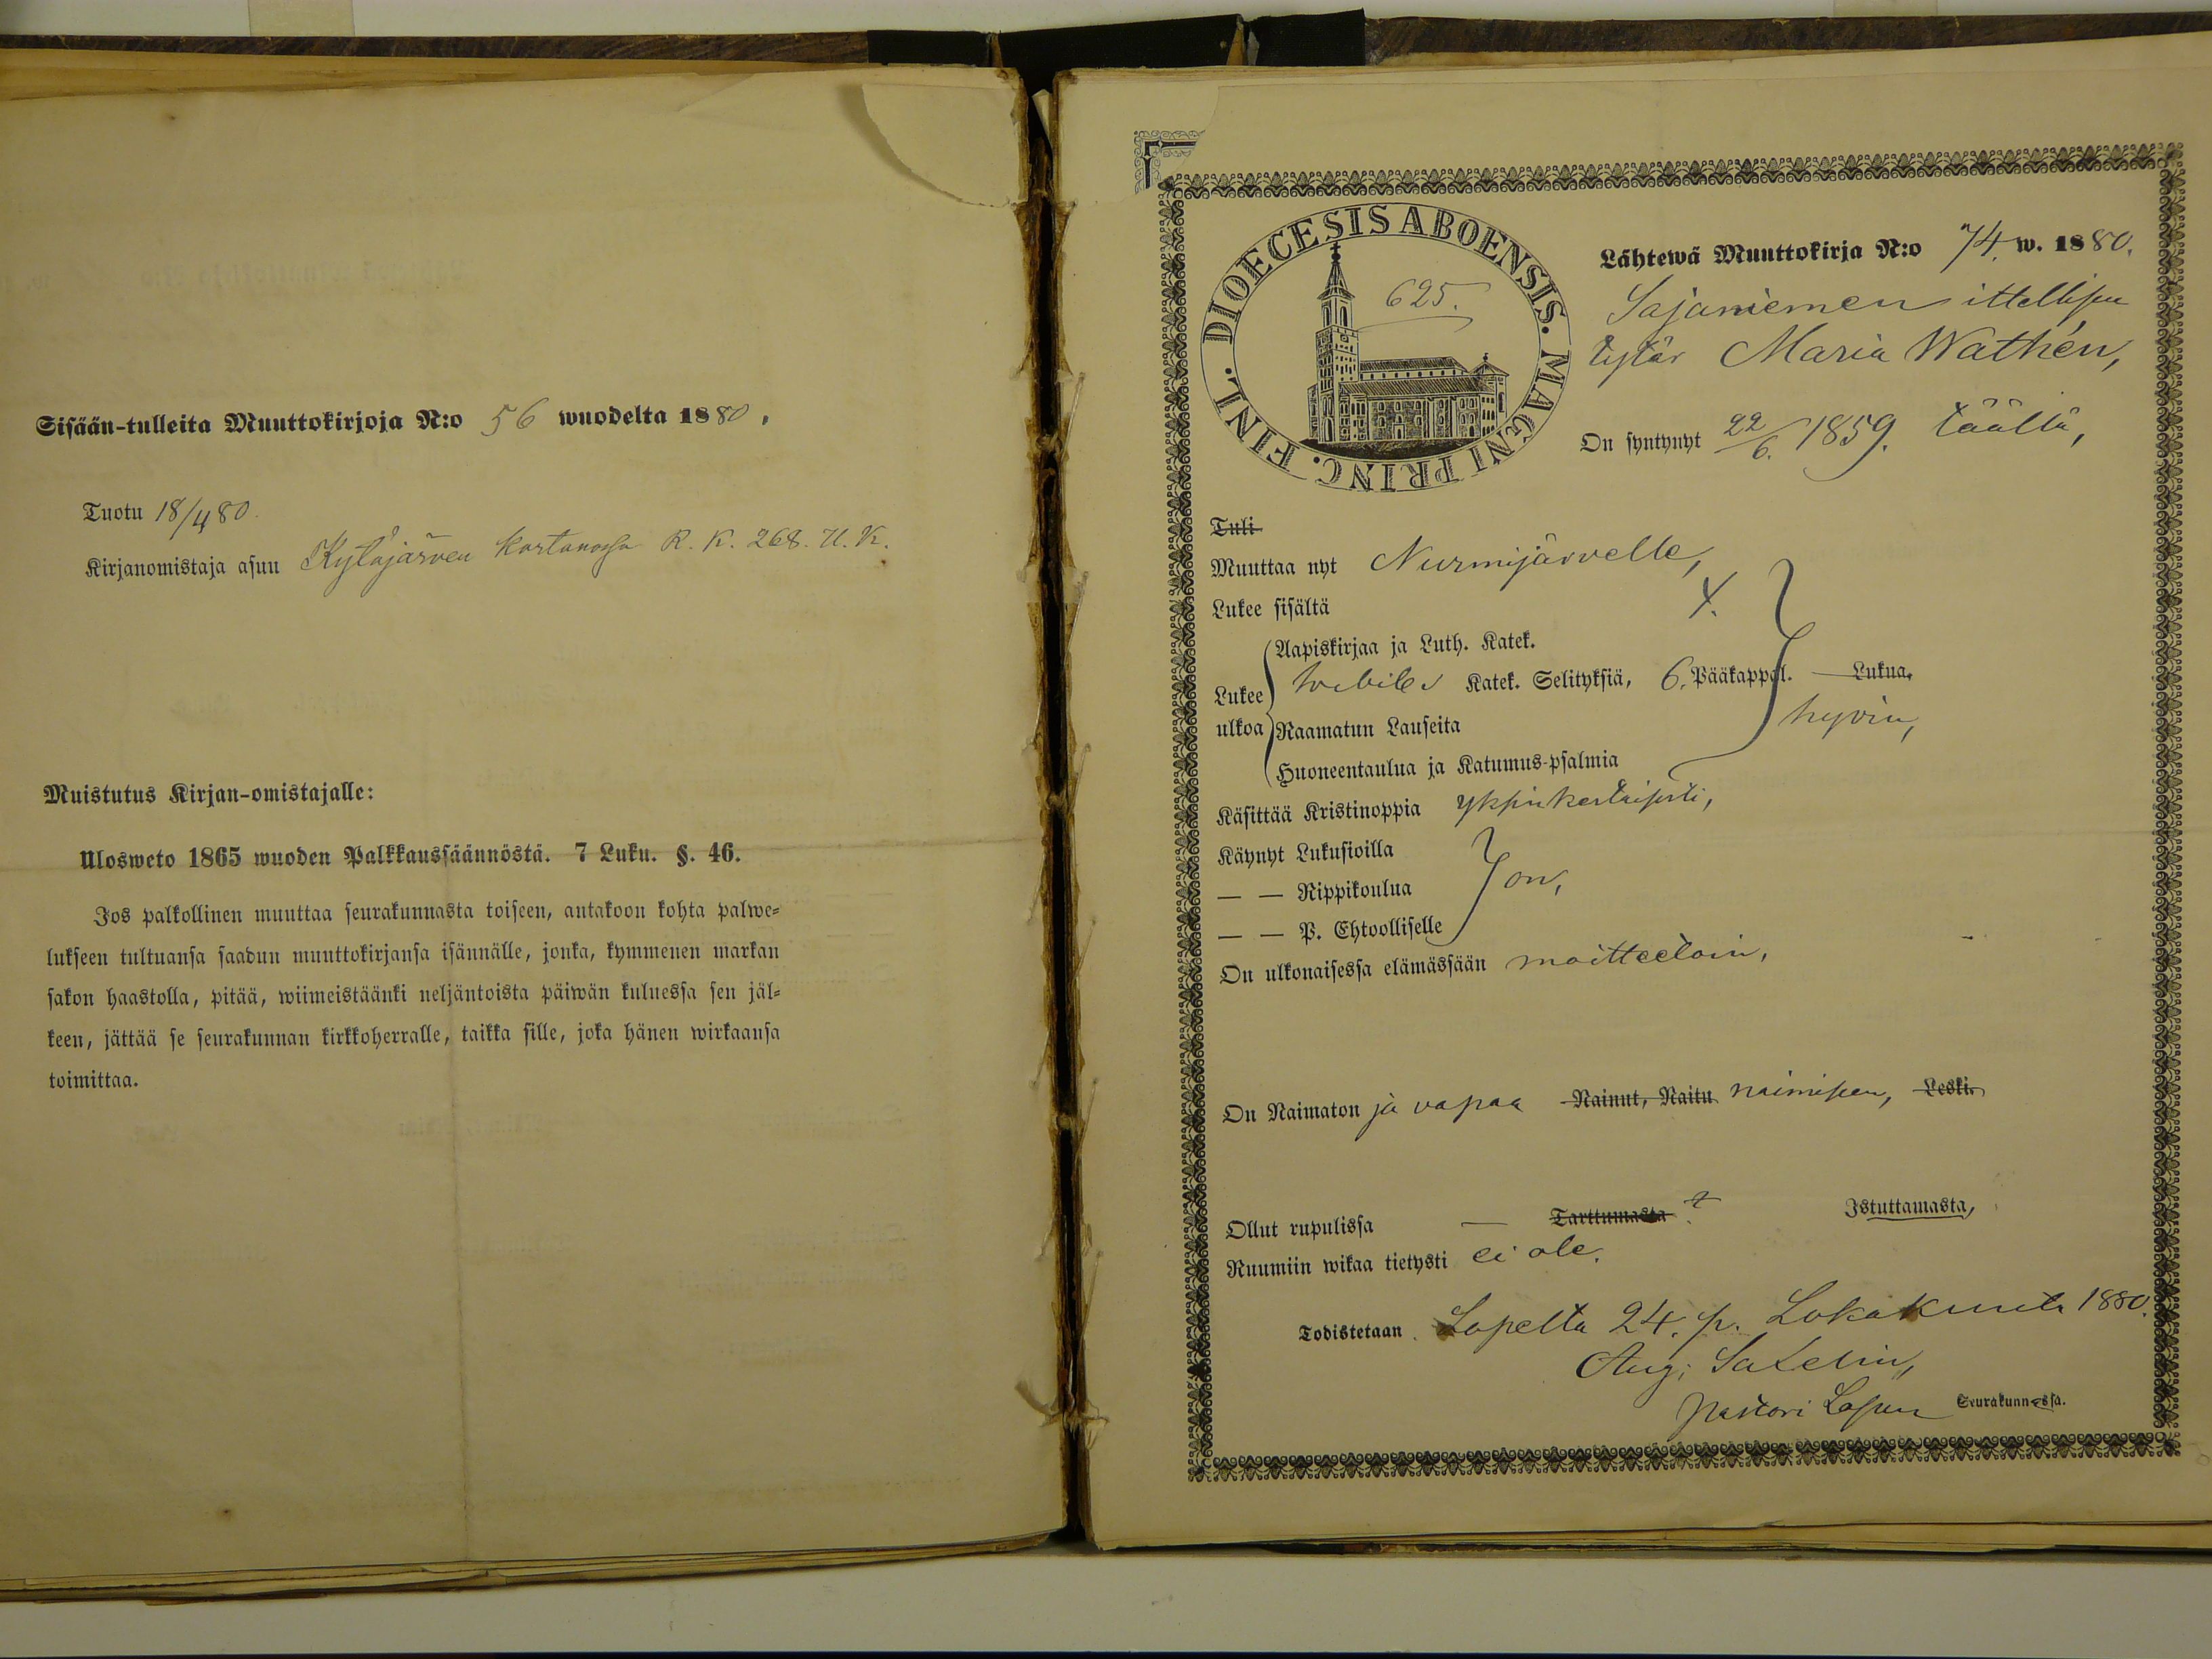 Sisään-tulleita Muuttokirjoja N:o 56 wuodelta 1880.
Tuotu 18/4 80.
Kirjanomistaja asuu Kytäjärven kartanossa R. K. 268. U. K.
Muistutus Kirjan-omistajalle:
Ulosweto 1865 wuoden Palkkaussäännöstä. 7 Luku. §. 46.
Jos palkollinen muuttaa seurakunnasta toiseen, antakoon kohta palwe=
lukseen tultuansa saadun muuttokirjansa isännälle, jonka, kymmenen markan
sakon haastolla, pitää, wiimeistäänki neljäntoista päiwän kuluessa sen jäl=
keen, jättää se seurakunnan kirkkoherralle, taikka sille, joka hänen wirkaansa
toimittaa.
DIOECESIS ABOENSIS. MAGNI PRINC. FINL.
625.
Lähtewä Muuttokirja N:o 74. w. 1880.
Sajaniemen ittellisen
tytär Maria Wathén,
On syntynyt 22/6. 1859. täällä,
Tuli
Muuttaa nyt Nurmijärvelle,
Lukee sisältä
Aapiskirjaa ja Luth. Katek.
Lukee Katek. Selityksiä, 6. Pääkappal. Lukua.
hyvin,
ulkoa Raamatun Lauseita
Huoneentaulua ja Katumus-psalmia
Käsittää Kristinoppia yksinkertaisesti,
Käynyt Lukusioilla
— — Rippikoulua on,
— — P. Ehtoolliselle
On ulkonaisessa elämässään moitteetoin,
On Naimaton ja vapaa Nainut, Naitu naimiseen, Leski.
Ollut rupulissa — Tarttumasta ? Istuttamasta,
Ruumiin wikaa tietysti ei ole.
Todistetaan Lopelta 24. p. Lokakuuta 1880.
Aug. Salelin,
pastori Lopen Seurakunnassa.